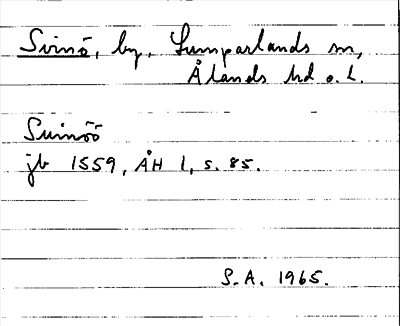 Svinö, by, Lumparlands sn,
Ålands hd o. l.
Suinöö
jb 1559, ÅH 1, s. 85.
S.A. 1965.